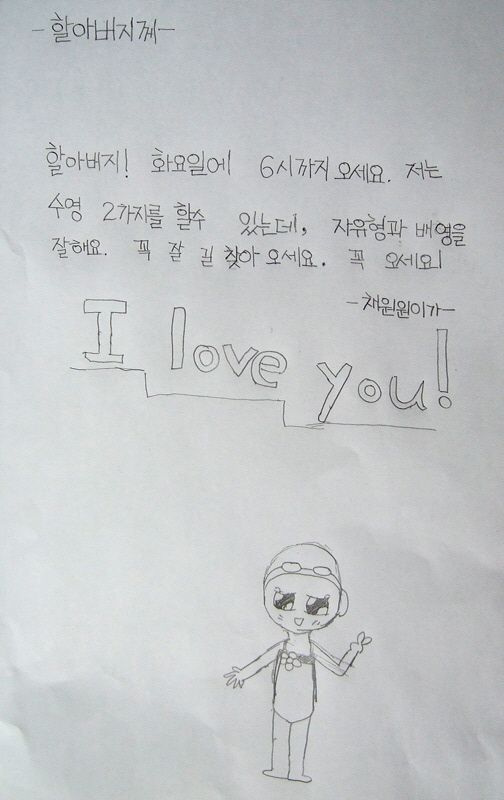 -할아버지께-
할아버지! 화요일에 6시까지 오세요. 저는
수영 2가지를 할수 있는데, 자유형과 배영을
잘해요. 꼭 잘 길 찾아 오세요. 꼭 오세요!
-채원원이가-
I love you!